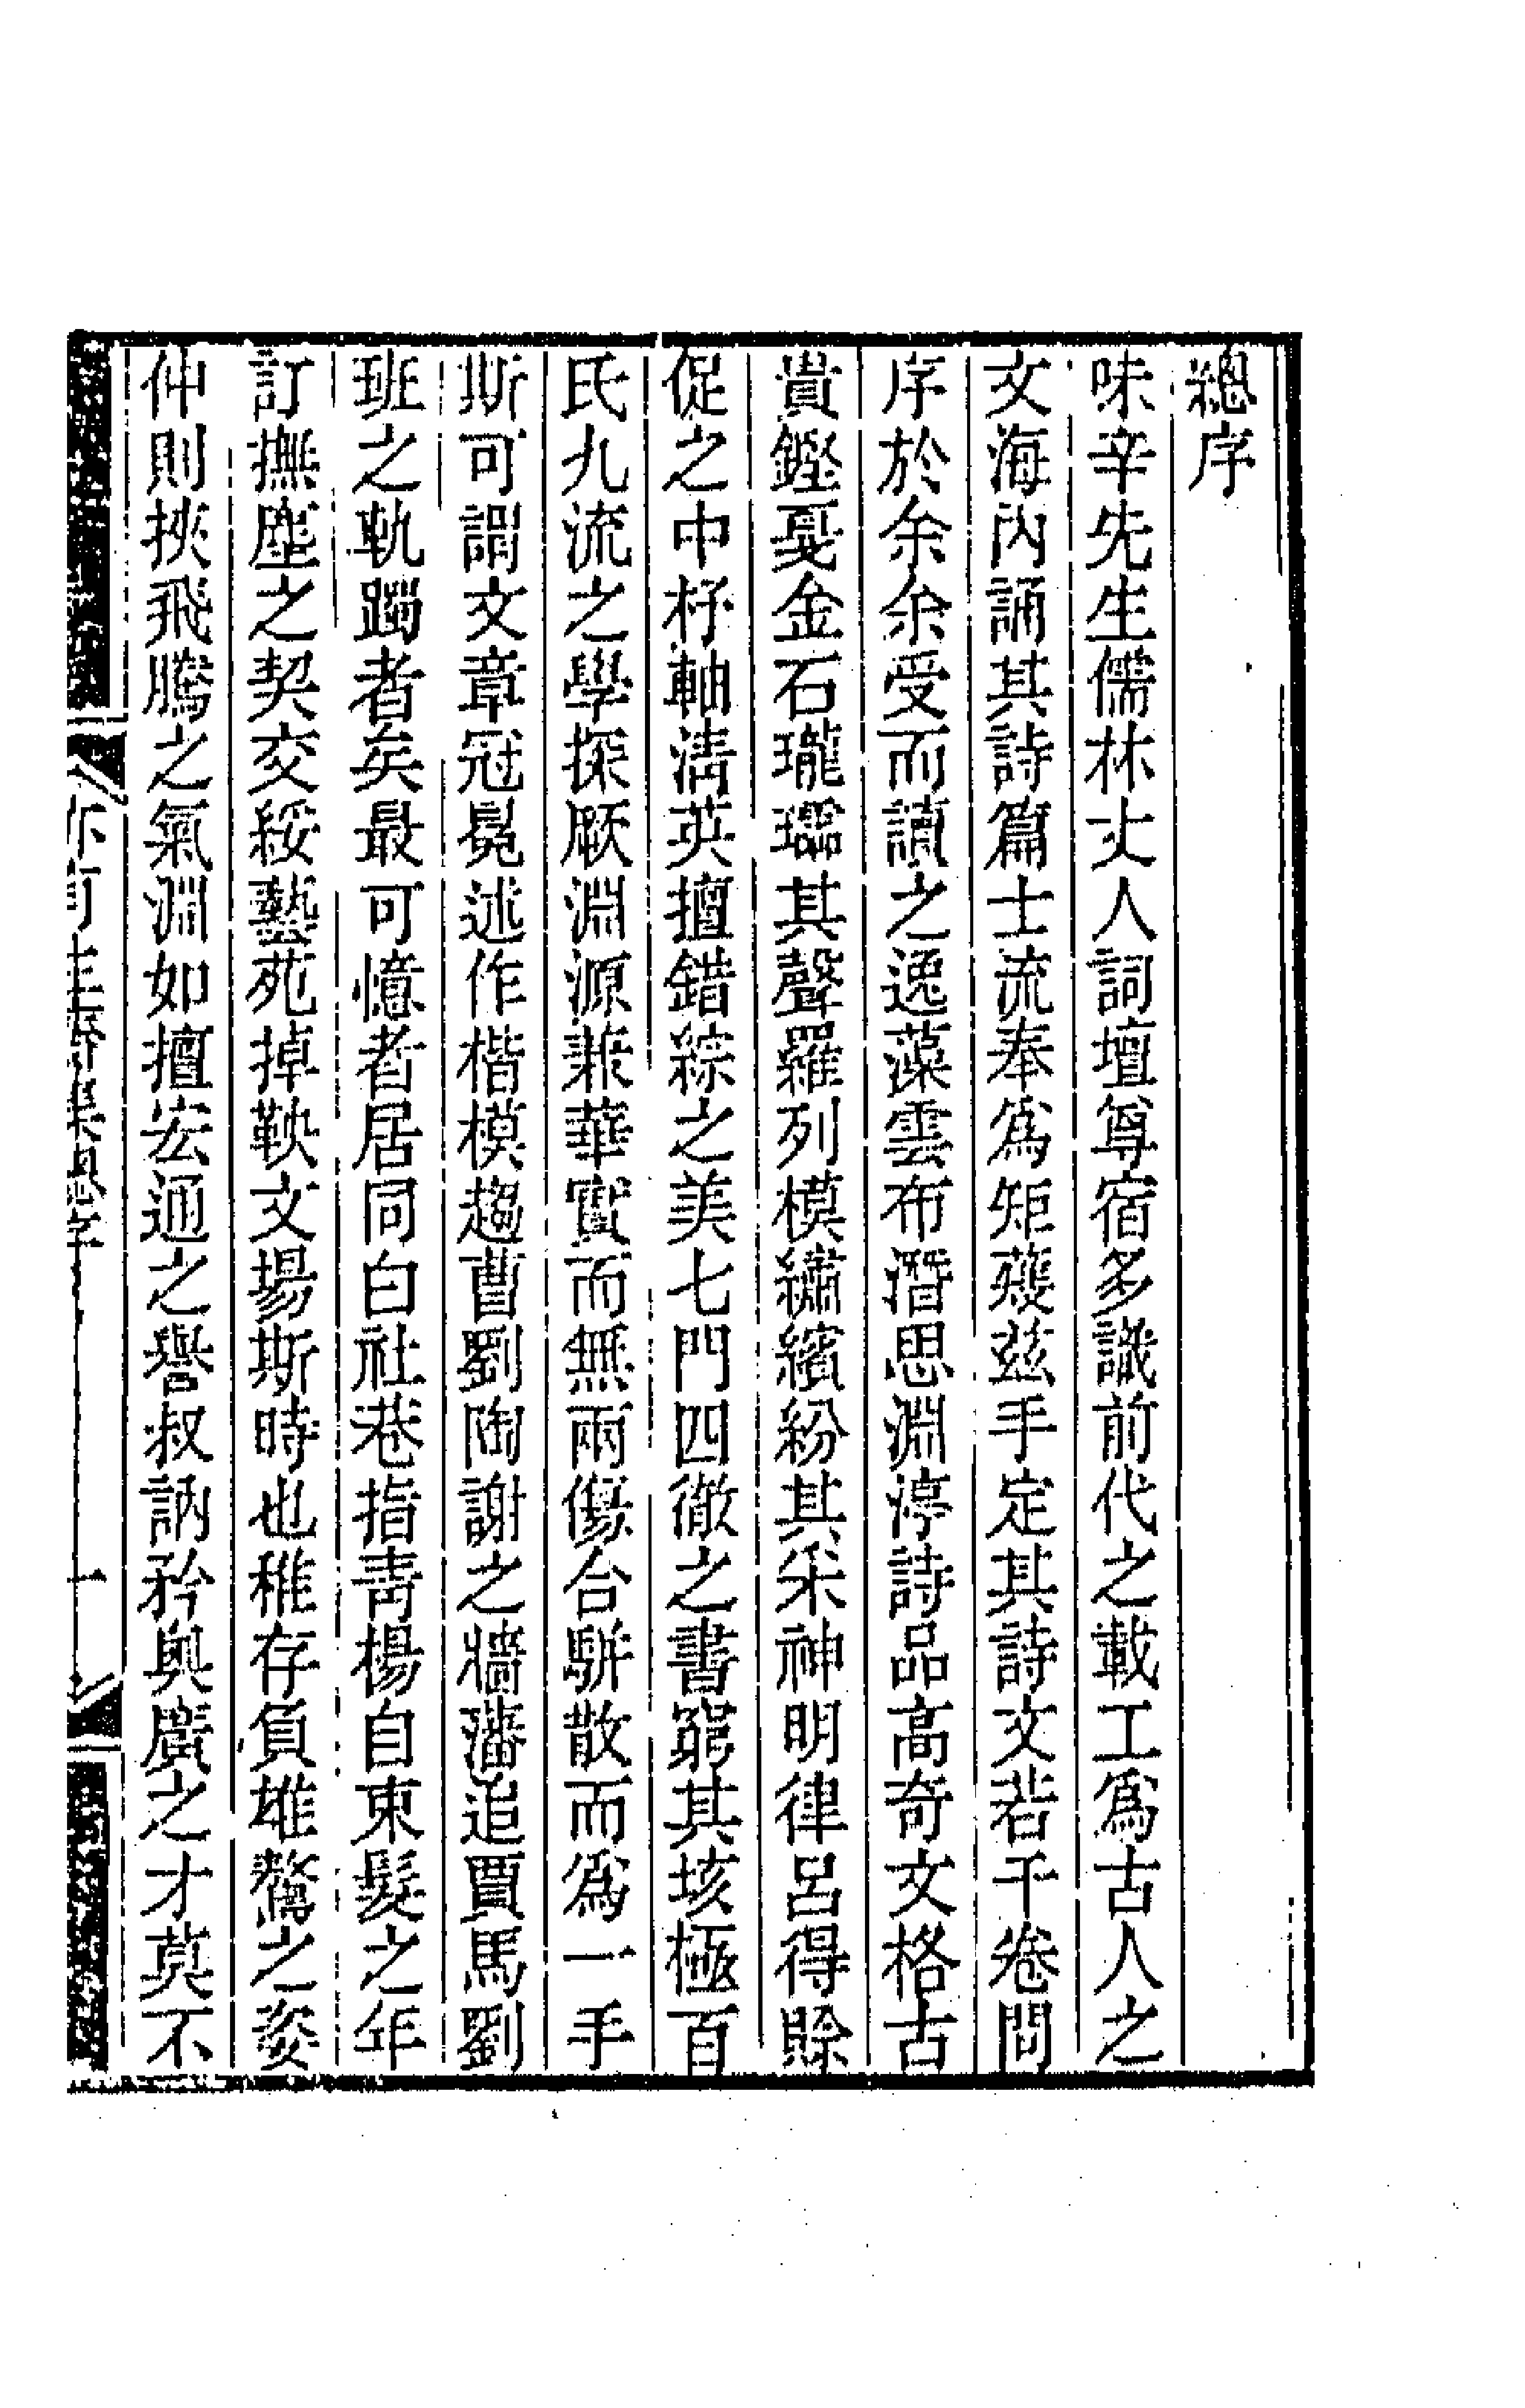 總序
味辛先生儒林丈人詞壇尊宿多識前代之載工爲古人之
文海內誦其詩篇士流奉爲矩矱茲手定其詩文若干卷問
序於余余受而讀之逸藻雲布潛思淵渟詩品高奇文格古
貴鏗戛金石瓏瓃其聲羅列模繡繽紛其采神明律呂得賒
促之中杼軸淸英擅錯綜之美七門四徹之書窮其垓極百
氏九流之學探厥淵源兼華實而無兩傷合騈散而爲一手
斯可謂文章冠冕述作楷模趨曹劉陶謝之牆藩追賈馬劉
班之軌躅者矣最可憶者居同白社巷指靑楊自束髮之年
訂撫塵之契交綏藝苑掉鞅文場斯時也稚存負雄驁之姿
仲則挾飛騰之氣淵如擅宏通之譽叔訥矜奧廣之才莫不
亦有生齋集總序
一